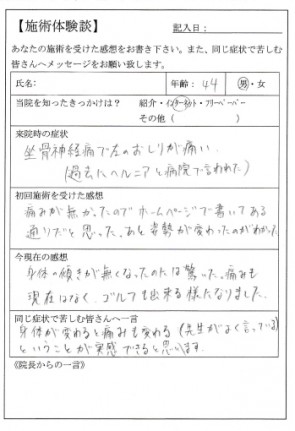 【施術体験談】 記入日：
あなたの施術を受けた感想をお書き下さい。また、同じ症状で苦しむ
皆さんへメッセージをお願い致します。
氏名: 年齢：44 男・女
当院を知ったきっかけは？ 紹介・インターネット・フリーペーパー
その他（ ）
来院時の症状
坐骨神経痛で左のおしりが痛い
(過去にヘルニアと病院で言われた)
初回施術を受けた感想
痛みが無かったのでホームページで書いてある
通りだと思った。あと姿勢が変わったのがわかった
今現在の感想
身体の傾きが無くなったのには驚いた。痛みも
現在はなく、ゴルフも出来る様になりました。
同じ症状で苦しむ皆さんへ一言
身体が変わると痛みも変わる(先生がよく言っている)
ということが実感できると思います。
《院長からの一言》